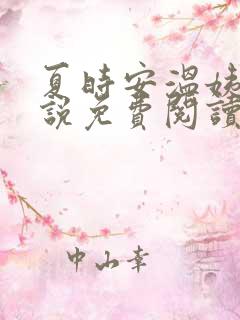 夏時安溫姨
說免費閱讀
中山幸